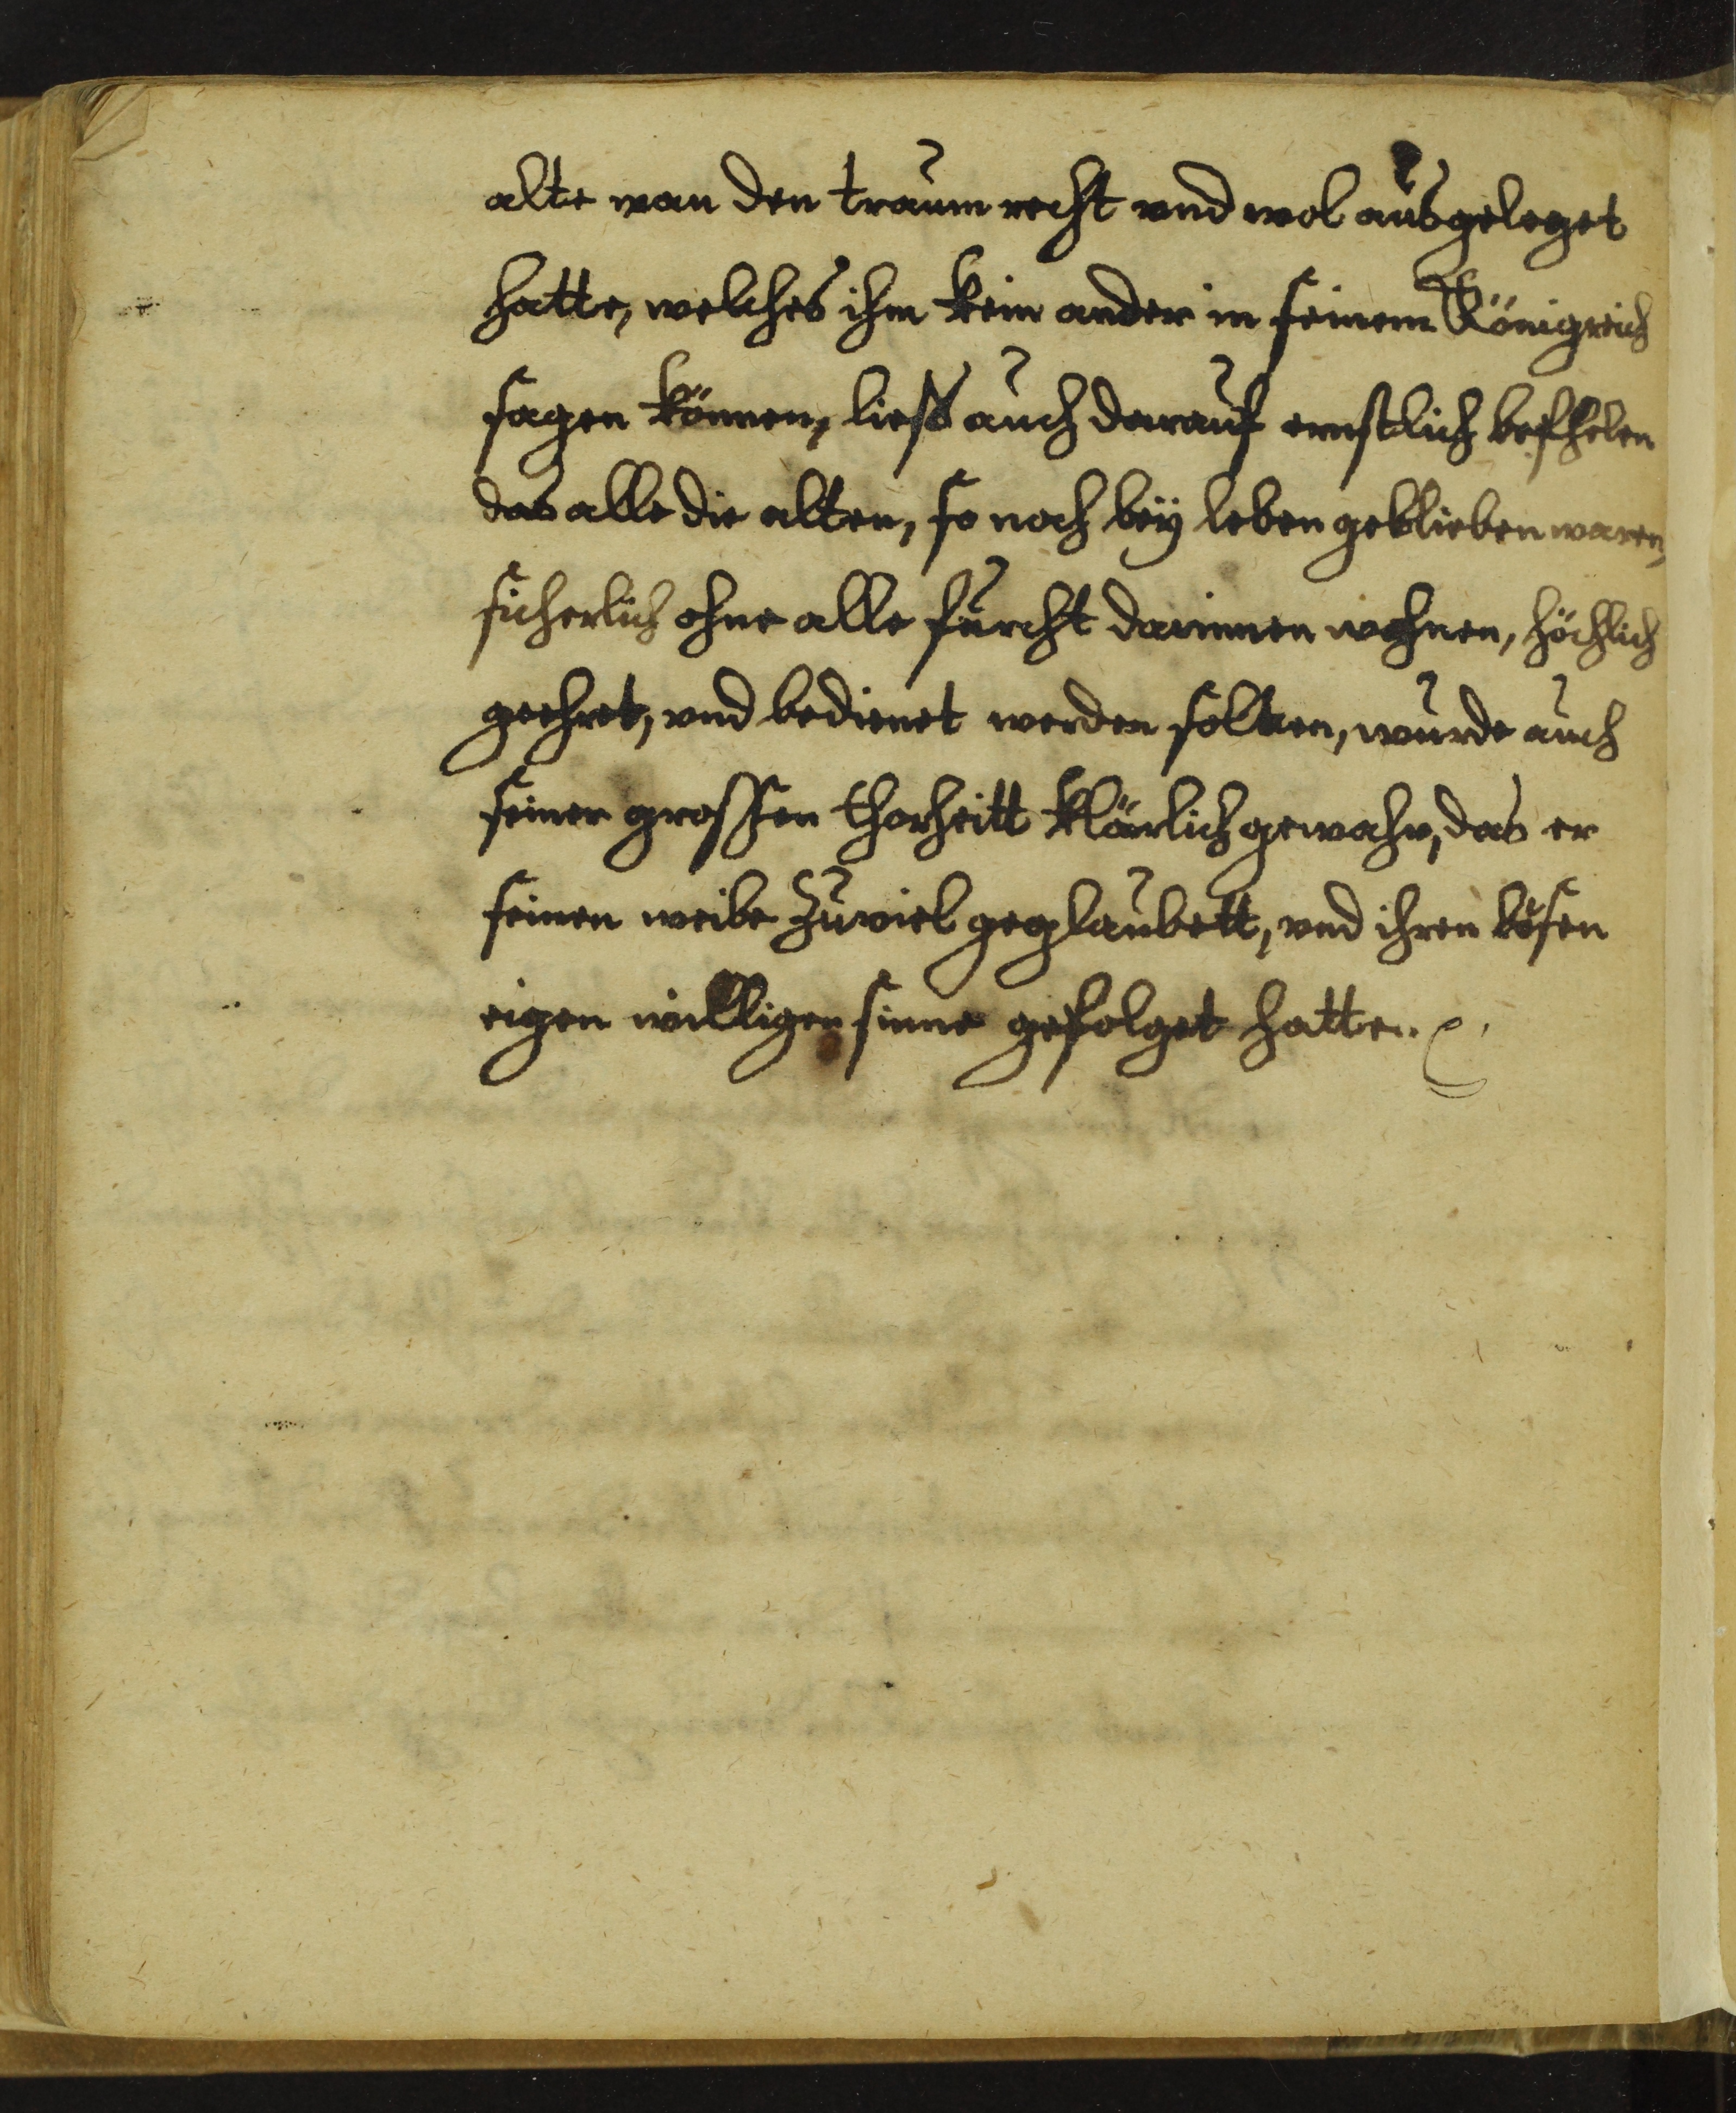 alte man den traum recht vnd wol ausgeleget
hatte, welches ihm kein ander in seinem Königreich
sagen können, ließ auch darauf ernstlich befhelen
das alle die alten, so noch beÿ leben geblieben waren,
sicherlich ohne alle furcht darinnen wohnen, höchlich
geehret, vnd bedienet werden solten, wurde auch
seiner grossen thorheitt klärlich gewahr, das er
seinen weibe zuviel geglaubett, vnd ihren bösen
eigen willigen sinne gefolget hatte.